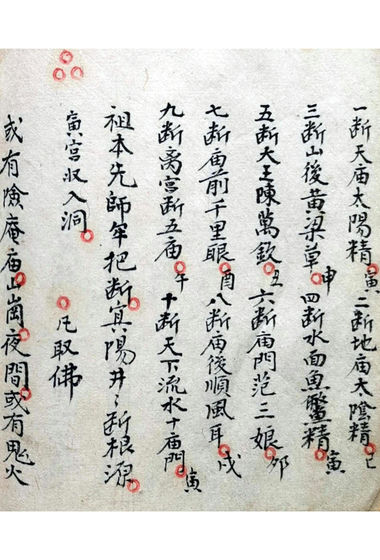 一断天庙太陽精寅二断地庙太陰精巳
三断山後黄梁草申四断水面魚鱉精寅
五断大王陳萬欽丑六断庙門范三娘卯
七断庙前千里眼酉八断庙後順風耳戌
九断离宫断五庙午十断天下流水十庙門寅
祖本先師牢把断寘陽井〻断根源
寅宫収入洞 凡取佛
或有險庵庙山崗夜間或有鬼火